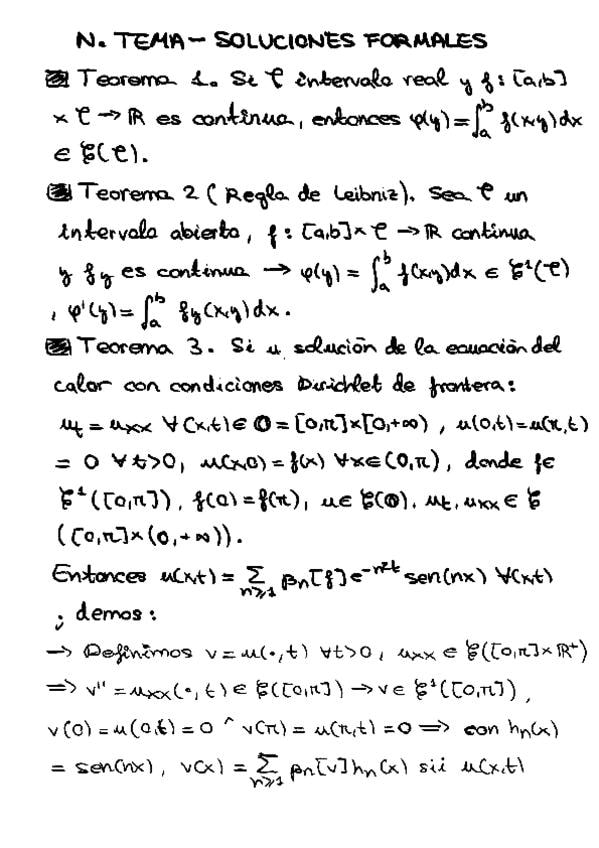 N. TEMA - SOLUCIONES FORMALES
Teorema 1. Si τ intervalo real y f: [a,b]
× τ → ℝ es continua, entonces φ(y) = ∫_a^b f(x,y)dx
∈ ξ(τ).
Teorema 2 (Regla de Leibniz). Sea τ un
intervalo abierto, f: [a,b]×τ → ℝ continua
y f_y es continua → φ(y) = ∫_a^b f(x,y)dx ∈ ξ¹(τ)
, φ'(y) = ∫_a^b f_y(x,y)dx.
Teorema 3. Si u solución de la ecuación del
calor con condiciones Dirichlet de frontera:
u_t = u_xx ∀(x,t)∈ Θ = [0,π]×[0,+∞), u(0,t)=u(π,t)
= 0 ∀t>0, u(x,0)=f(x) ∀x∈(0,π), donde f∈
ξ¹([0,π]), f(0)=f(π), u∈ ξ(Θ), u_t, u_xx ∈ ξ
([0,π]×(0,+∞)).
Entonces u(x,t) = Σ_{n≥1} β_n[f]e^{-n²t} sen(nx) ∀(x,t)
; demos:
→ Definimos v = u(·,t) ∀t>0, u_xx ∈ ξ([0,π]×ℝ⁺)
⇒ v'' = u_xx(·,t) ∈ ξ([0,π]) → v∈ ξ¹([0,π]),
v(0) = u(0,t) = 0 ^ v(π) = u(π,t) = 0 ⇒ con h_n(x)
= sen(nx), v(x) = Σ_{n≥1} β_n[v]h_n(x) sii u(x,t)